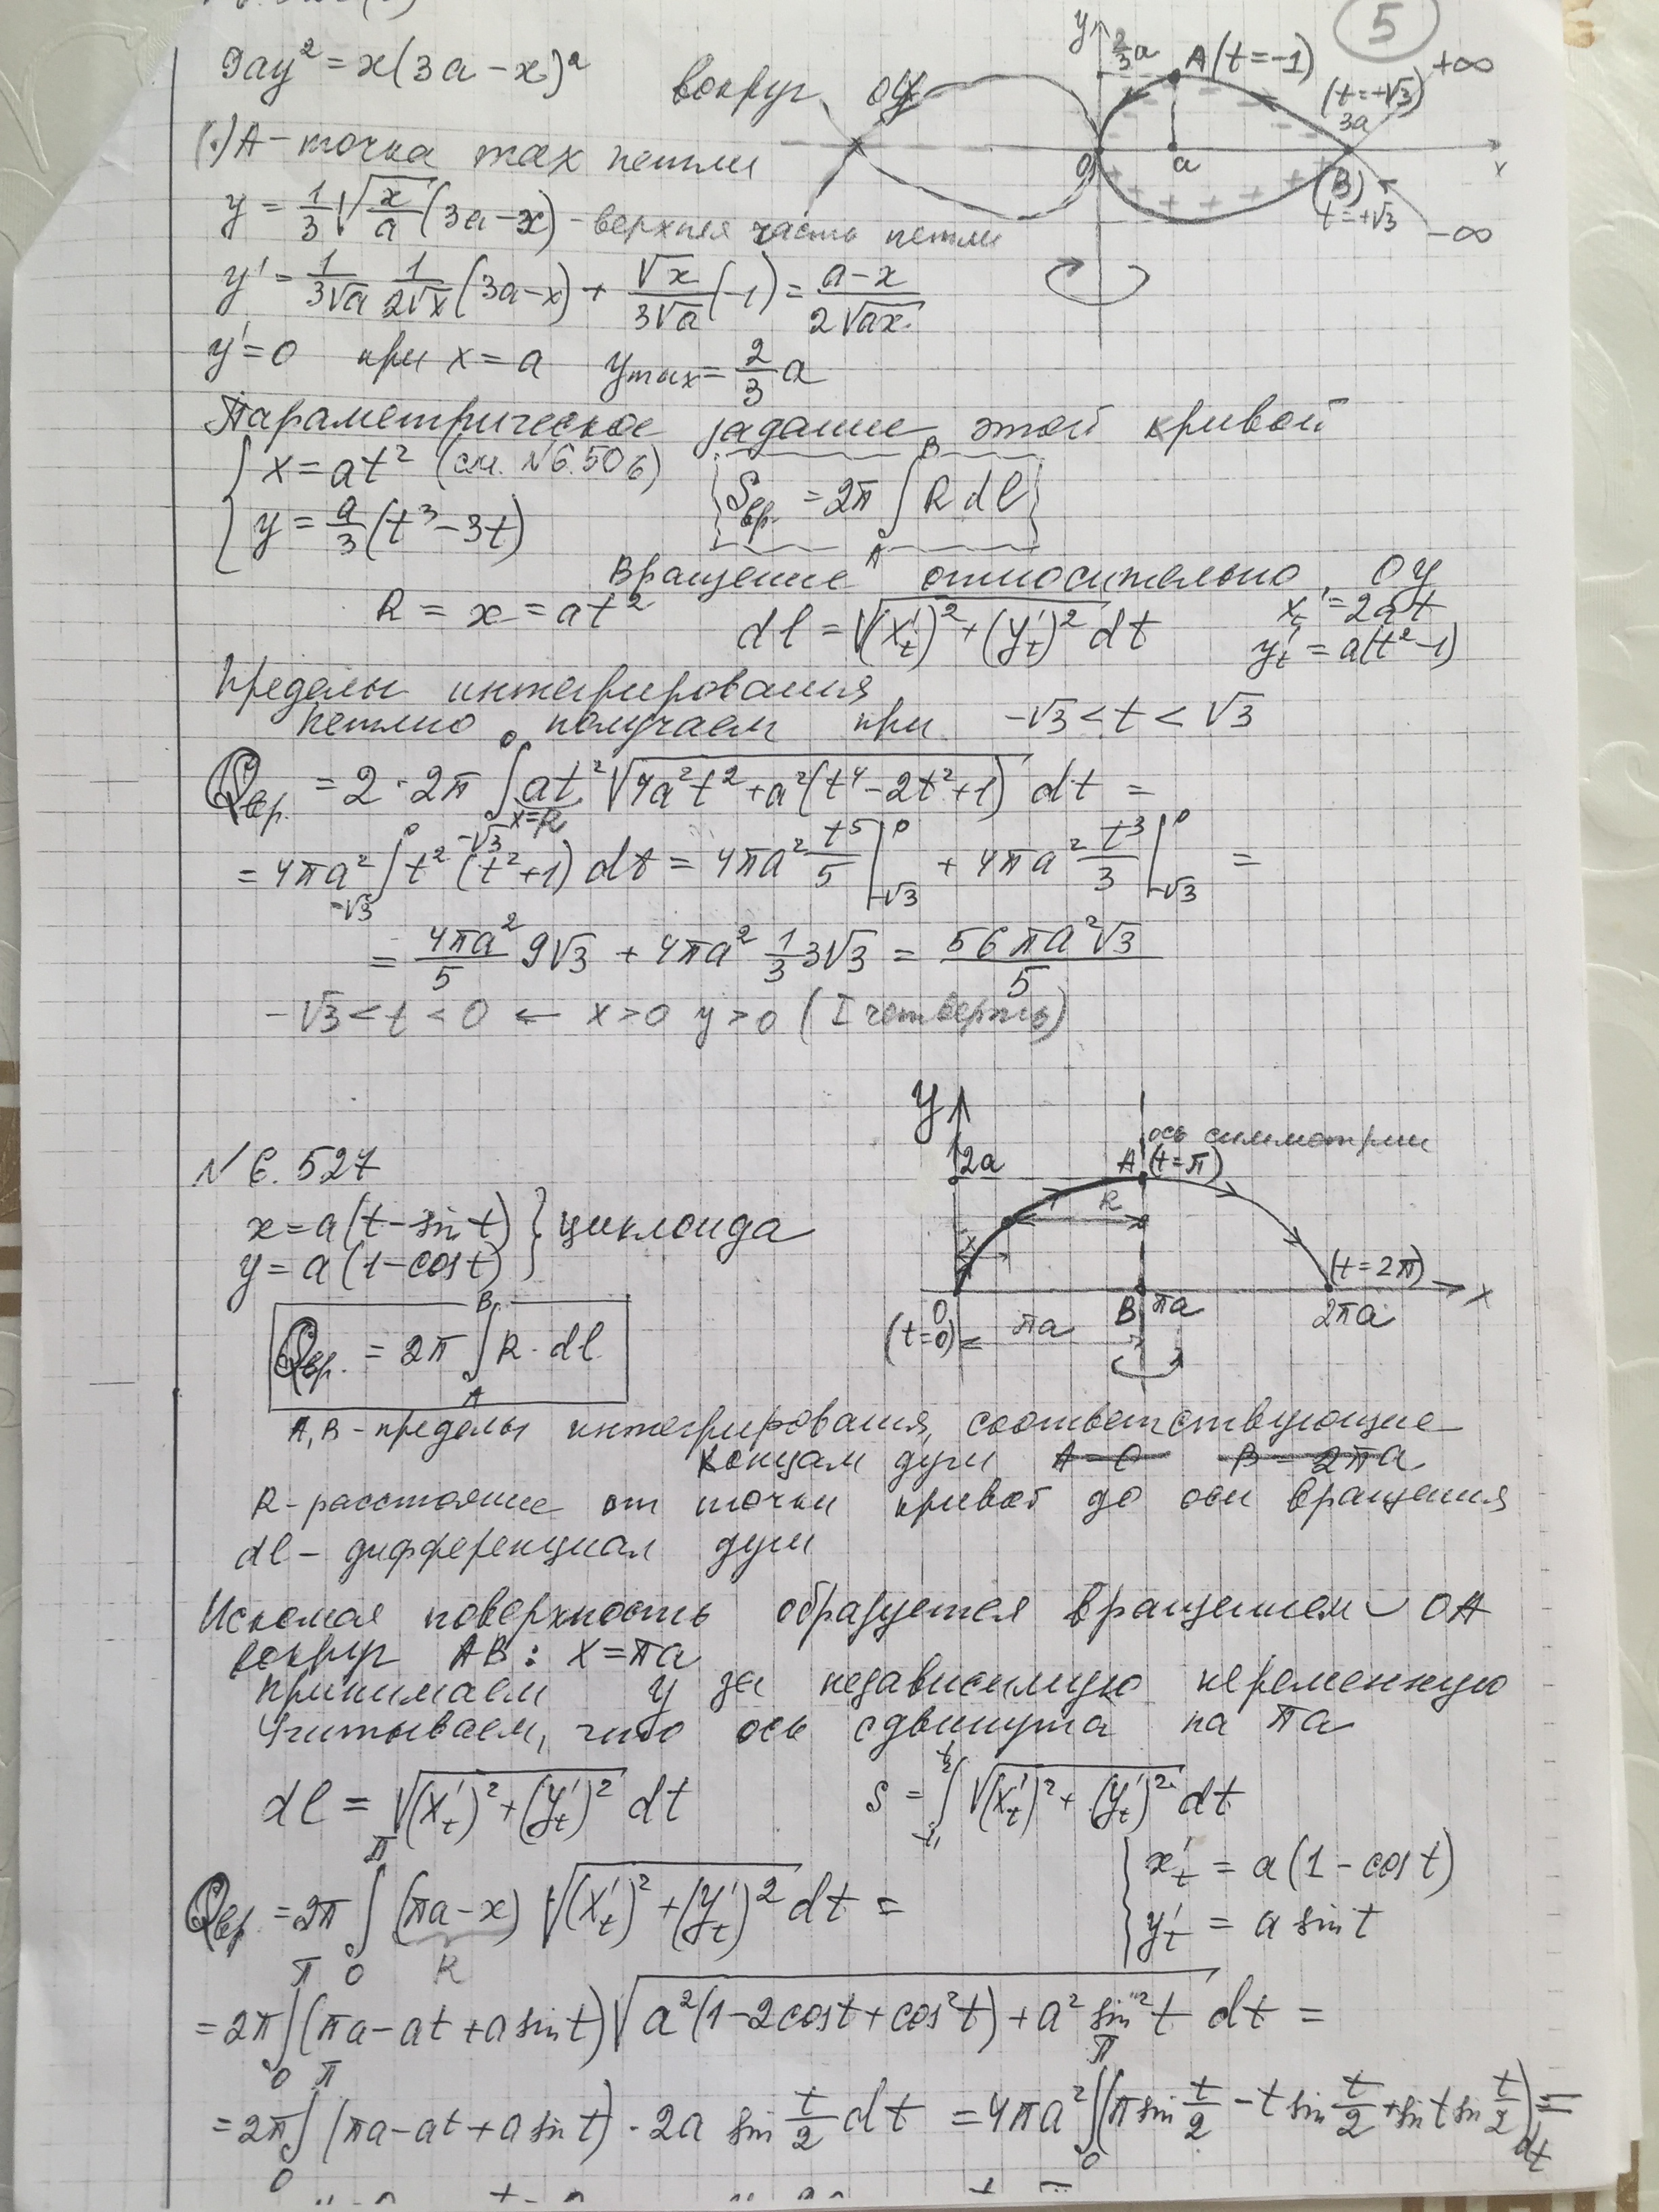 5
9ay² = x(3a − x)²
вокруг OY
y
2/3 a
A(t=−1)
+∞
(t=+√3)
3a
0
a
x
(B)
t=+√3
−∞
(·)A – точка max петли
y = 1/3 √(x/a) (3a−x) – верхняя часть петли
y' = 1/(3√a) 1/(2√x) (3a−x) + √x/(3√a) (−1) = (a−x)/(2√(ax))
y'=0 при x=a y max = 2/3 a
Параметрическое задание этой кривой
{ x = at² (см. №6.506)
{ y = a/3 (t³−3t)
Sвр. = 2π ∫_A^B R dl
Вращение относительно OY
R = x = at²
dl = √((x't)² + (y't)²) dt
x't = 2at
y't = a(t²−1)
Пределы интегрирования
петлю получаем при −√3 < t < √3
Qвр. = 2·2π ∫_{−√3}^0 at² √(4a²t² + a²(t⁴−2t²+1)) dt =
x=R
= 4πa² ∫_{−√3}^0 t² (t²+1) dt = 4πa² t⁵/5 |_{−√3}^0 + 4πa² t³/3 |_{−√3}^0 =
= 4πa²/5 9√3 + 4πa² 1/3 3√3 = 56πa²√3/5
−√3 < t < 0 ← x>0 y>0 (I четверть)
y
ось симметрии
2a
A (t=π)
R
x
(t=2π)
0
(t=0)
πa
B
πa
2πa
x
N 6.527
x = a(t−sin t) } циклоида
y = a(1−cos t)
Qвр. = 2π ∫_A^B R·dl
A, B – пределы интегрирования, соответствующие
концам дуги A=0 B=2πa
R – расстояние от точки кривой до оси вращения
dl – дифференциал дуги
Искомая поверхность образуется вращением ◡ OA
вокруг AB: x=πa
Принимаем y за независимую переменную
Учитываем, что ось сдвинута на πa
dl = √((x't)² + (y't)²) dt
s = ∫_{t₁}^{t₂} √((x't)² + (y't)²) dt
Qвр. = 2π ∫_0^π (πa−x) √((x't)² + (y't)²) dt =
R
{ x't = a(1−cos t)
{ y't = a sin t
= 2π ∫_0^π (πa−at+a sin t) √(a²(1−2cos t+cos²t) + a² sin²t) dt =
= 2π ∫_0^π (πa−at+a sin t)·2a sin t/2 dt = 4πa² ∫_0^π (π sin t/2 − t sin t/2 + sin t sin t/2) dt =